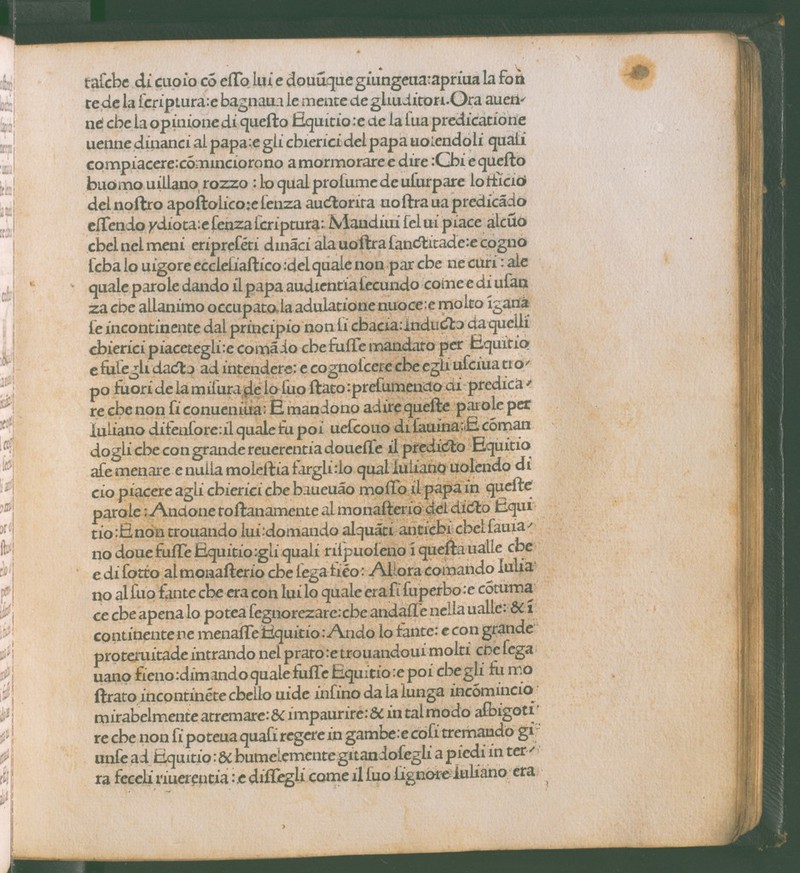 taſche di cuoio cō eſſo lui e douūque giungeua:apriua la fon
te de la ſcriptura:e bagnaua le mente de gliuditori.Ora auen-
ne che la opinione di queſto Equitio:e de la ſua predicatione
uenne dinanci al papa:e gli chierici del papa uolendoli quaſi
compiacere:cōminciorono a mormorare e dire :Chi e queſto
huomo uillano rozzo : lo qual proſume de uſurpare lofficio
del noſtro apoſtolico:e ſenza auctorita uoſtra ua predicādo
eſſendo ydiota:e ſenza ſcriptura: Mandiui ſel ui piace alcūo
chel nel meni eripreſēti dināci ala uoſtra ſanctitade:e cogno
ſcha lo uigore eccleſiaſtico :del quale non par che ne curi : ale
quale parole dando il papa audientia ſecundo come e di uſan
za che allanimo occupato.la adulatione nuoce:e molto īgana
ſe incontinente dal principio non ſi chacia:inducto da quelli
chierici piacetegli:e comādo che fuſſe mandato per Equitio
e fuſegli dacto ad intendere: e cognoſcere che egli uſciua tro-
po fuori de la miſura de lo ſuo ſtato:preſumendo di predica-
re che non ſi conueniua: E mandono adire queſte parole per
Iuliano difenſore:il quale fu poi ueſcouo di ſauina:E cōman
dogli che con grande reuerentia doueſſe il predicto Equitio
aſe menare e nulla moleſtia fargli:lo qual Iuliano uolendo di
cio piacere agli chierici che haueuāo moſſo il papa in queſte
parole :Andone toſtanamente al monaſterio del dicto Equi
tio:E non trouando lui:domando alquāti antichi chel ſauia-
no doue fuſſe Equitio:gli quali riſpuoſeno ī queſta ualle che
e di ſotto al monaſterio che ſega fiēo: Allora comando Iulia
no al ſuo fante che era con lui lo quale era ſi ſuperbo:e cōtuma
ce che apena lo potea ſegnorezare:che andaſſe nella ualle: & ī
continente ne menaſſe Equitio:Ando lo fante: e con grande
proteruitade intrando nel prato:e trouandoui molti che ſega
uano fieno:dimando quale fuſſe Equitio:e poi che gli fu mo
ſtrato incontinēte chello uide inſino da la lunga incōmincio
mirabelmente atremare:& impaurire:& in tal modo aſbigoti
re che non ſi poteua quaſi regere in gambe:e coſi tremando gi
unſe ad Equitio:& humelemente gitandoſegli a piedi in ter-
ra feceli riuerentia : e diſſegli come il ſuo ſignore Iuliano era